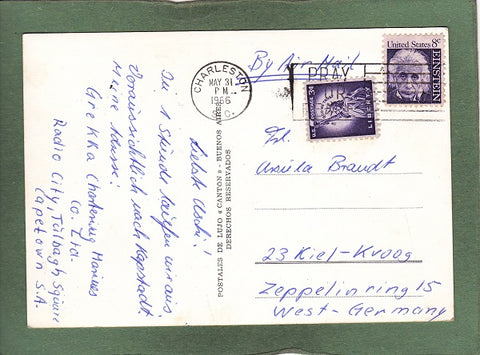 Liebste Uschi!
In 1 Stunde laufen wir aus
Voraussichtlich nach Kapstadt.
Meine
Grekka Chartering Marines
Co. Ltd.
Radio City, Tulbagh Square
Capetown S.A.
POSTALES DE LUJO "CANTON" - BUENOS AIRES
DERECHOS RESERVADOS
CHARLESTON
MAY 31
PM
1966
S.C.
PRAY
By Air Mail
United States 8c
EINSTEIN
LIBERTY
Frl.
Ursula Brandt
23 Kiel-Kroog
Zeppelinring 15
West-Germany